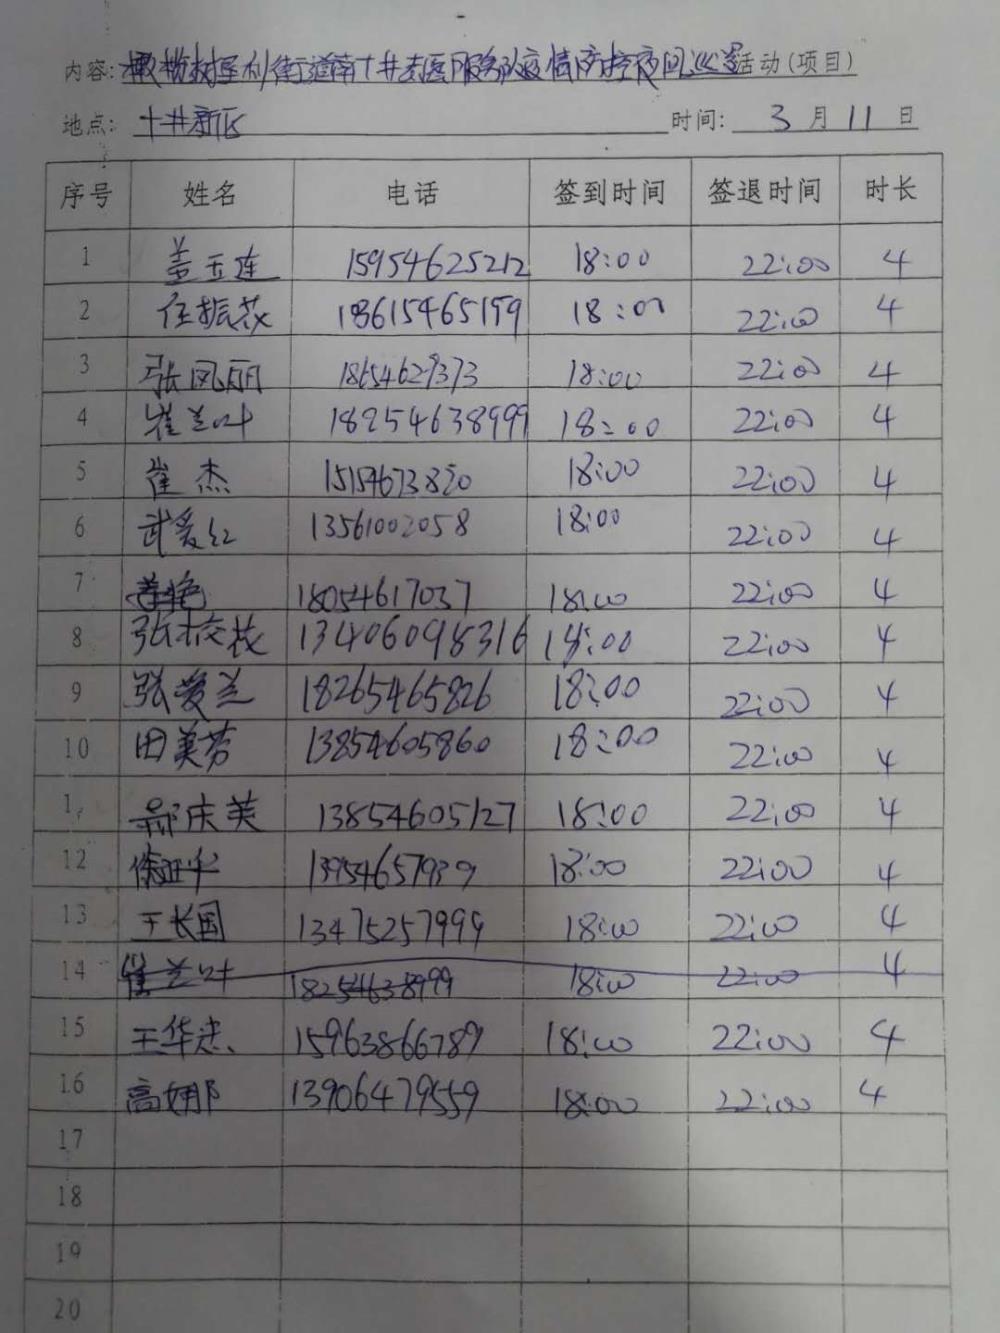 内容: 橄榄树垦利街道南十井志愿服务队疫情防控夜间巡逻活动(项目)
地点: 十井新区 时间: 3月11日
序号 姓名 电话 签到时间 签退时间 时长
1 盖玉连 15954625212 18:00 22:00 4
2 任振花 18615465159 18:00 22:00 4
3 张凤丽 18654629373 18:00 22:00 4
4 崔兰叶 18254638999 18:00 22:00 4
5 崔杰 15154673820 18:00 22:00 4
6 武爱红 13561002058 18:00 22:00 4
7 18054617037 18:00 22:00 4
8 张校花 13406098316 18:00 22:00 4
9 张爱兰 18265465826 18:00 22:00 4
10 田美芳 13854605860 18:00 22:00 4
1 郝庆美 13854605127 18:00 22:00 4
12 徐亚华 13954657939 18:00 22:00 4
13 王长国 13475257999 18:00 22:00 4
14 崔兰叶 18254638999 18:00 22:00 4
15 王华忠 15963866789 18:00 22:00 4
16 高娜 13906479559 18:00 22:00 4
17
18
19
20